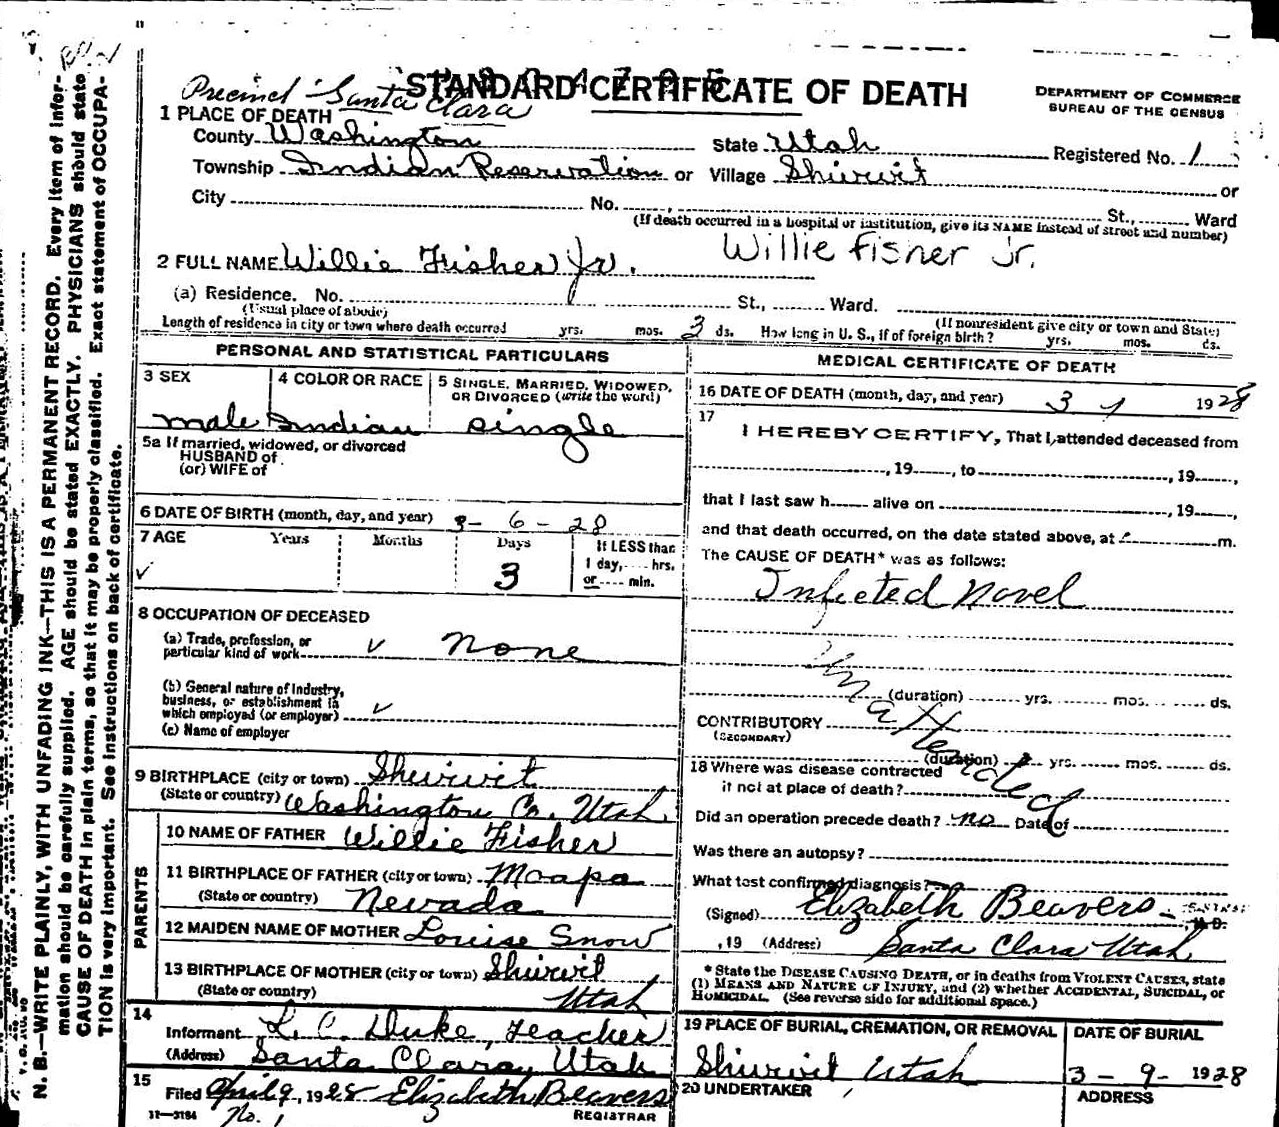 STANDARD CERTIFICATE OF DEATH
DEPARTMENT OF COMMERCE
BUREAU OF THE CENSUS
Precinct Santa Clara
1 PLACE OF DEATH
County Washington State Utah Registered No. 1
Township Indian Reservation or Village Shivwit or
City No. St., Ward
(If death occurred in a hospital or institution, give its NAME instead of street and number)
2 FULL NAME Willie Fisher Jr. Willie Fisher Jr.
(a) Residence. No. St., Ward.
(Usual place of abode) (If nonresident give city or town and State)
Length of residence in city or town where death occurred yrs. mos. 3 ds. How long in U. S., if of foreign birth? yrs. mos. ds.
PERSONAL AND STATISTICAL PARTICULARS
3 SEX 4 COLOR OR RACE 5 SINGLE, MARRIED, WIDOWED, OR DIVORCED (write the word)
male Indian single
5a If married, widowed, or divorced
HUSBAND of
(or) WIFE of
6 DATE OF BIRTH (month, day, and year) 3-6-28
7 AGE Years Months Days If LESS than
1 day, hrs.
3 or min.
8 OCCUPATION OF DECEASED
(a) Trade, profession, or
particular kind of work None
(b) General nature of industry,
business, or establishment in
which employed (or employer)
(c) Name of employer
9 BIRTHPLACE (city or town) Shivwit
(State or country) Washington Co. Utah
PARENTS
10 NAME OF FATHER Willie Fisher
11 BIRTHPLACE OF FATHER (city or town) Moapa
(State or country) Nevada
12 MAIDEN NAME OF MOTHER Louise Snow
13 BIRTHPLACE OF MOTHER (city or town) Shivwit
(State or country) Utah
14
Informant L. C. Duke, Teacher
(Address) Santa Clara, Utah
15
Filed April 9, 1928 Elizabeth Beavers
11-3184 No. 1 REGISTRAR
MEDICAL CERTIFICATE OF DEATH
16 DATE OF DEATH (month, day, and year) 3 1928
17
I HEREBY CERTIFY, That I attended deceased from
, 19 , to , 19 ,
that I last saw h alive on , 19 ,
and that death occurred, on the date stated above, at m.
The CAUSE OF DEATH* was as follows:
Infected Navel
Unattended
(duration) yrs. mos. ds.
CONTRIBUTORY
(SECONDARY)
(duration) yrs. mos. ds.
18 Where was disease contracted
if not at place of death?
Did an operation precede death? no Date of
Was there an autopsy?
What test confirmed diagnosis?
(Signed) Elizabeth Beavers M. D.
, 19 (Address) Santa Clara Utah
* State the DISEASE CAUSING DEATH, or in deaths from VIOLENT CAUSES, state
(1) MEANS AND NATURE OF INJURY, and (2) whether ACCIDENTAL, SUICIDAL, or
HOMICIDAL. (See reverse side for additional space.)
19 PLACE OF BURIAL, CREMATION, OR REMOVAL DATE OF BURIAL
Shivwit Utah 3-9-1928
20 UNDERTAKER ADDRESS
N. B.—WRITE PLAINLY, WITH UNFADING INK—THIS IS A PERMANENT RECORD. Every item of infor-
mation should be carefully supplied. AGE should be stated EXACTLY. PHYSICIANS should state
CAUSE OF DEATH in plain terms, so that it may be properly classified. Exact statement of OCCUPA-
TION is very important. See instructions on back of certificate.